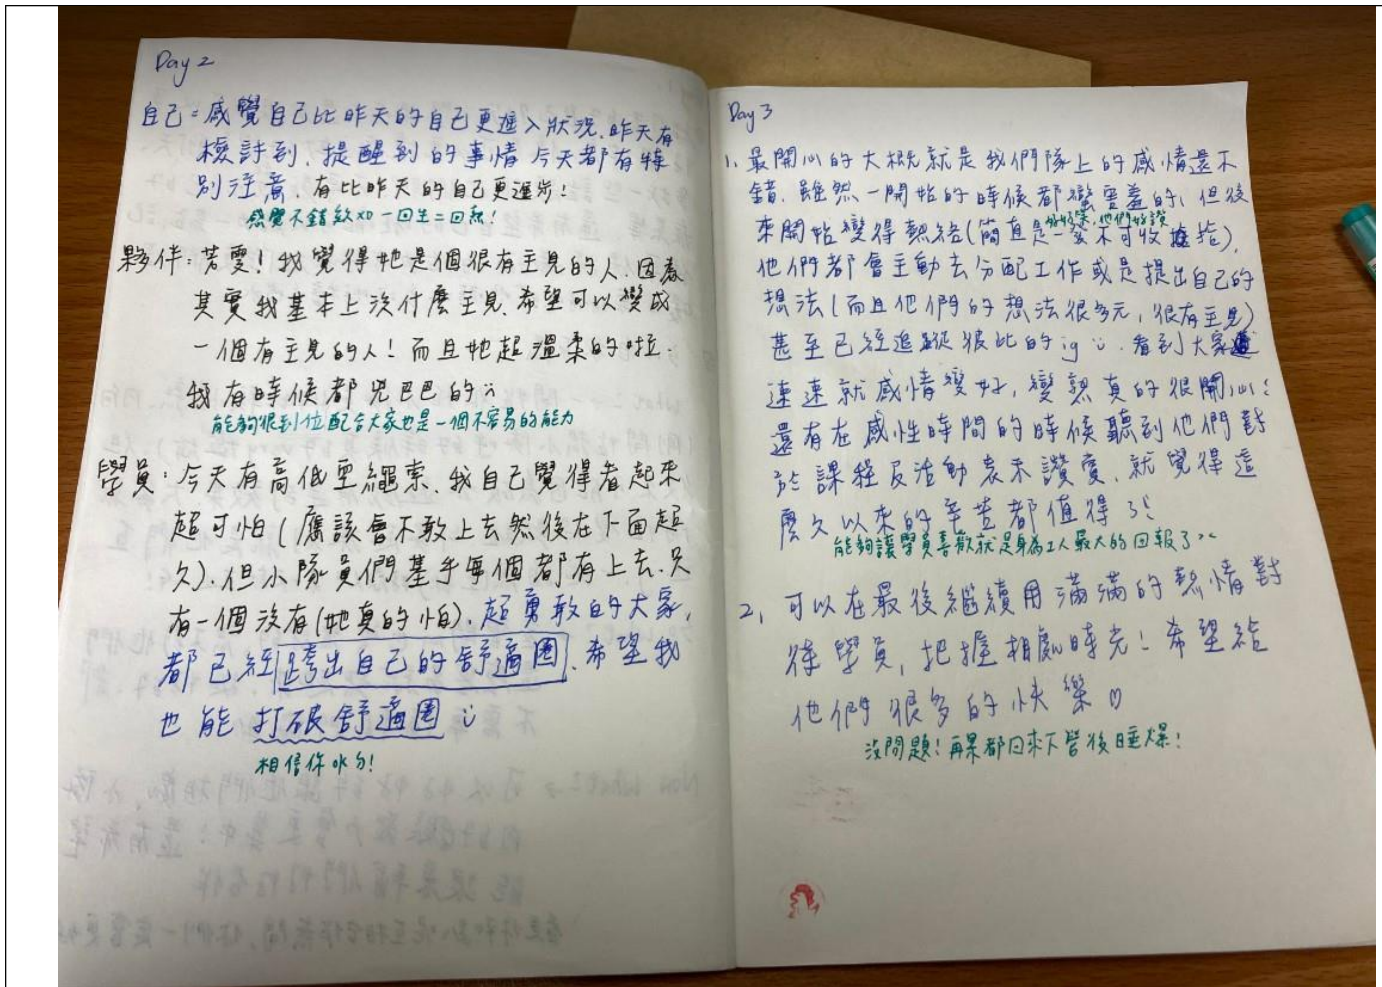 Day 2
自己：感覺自己比昨天的自己更進入狀況，昨天有
檢討到、提醒到的事情今天都有特
別注意，有比昨天的自己更進步！
感覺不錯欸 一回生二回熟！
夥伴：若雯！我覺得她是個很有主見的人，因為
其實我基本上沒什麼主見，希望可以變成
一個有主見的人！而且她超溫柔的啦，
我有時候都兇巴巴的
能夠很到位配合大家也是一個不容易的能力
學員：今天有高低空繩索，我自己覺得看起來
超可怕(應該會不敢上去然後在下面超
久)，但小隊員們基乎每個都有上去，只
有一個沒有(她真的怕)，超勇敢的大家，
都已經跨出自己的舒適圈，希望我
也能打破舒適圈
相信你
Day 3
1. 最開心的大概就是我們隊上的感情還不
錯，雖然一開始的時候都蠻害羞的，但後
來開始變得熱絡(簡直是一發不可收拾)，
他們都會主動去分配工作或是提出自己的
想法(而且他們的想法很多元，很有主見)
甚至已經追蹤彼此的ig，看到大家
速速就感情變好，變熟真的很開心！
還有在感性時間的時候聽到他們對
於課程及活動表示讚賞，就覺得這
麼久以來的辛苦都值得了！
能夠讓學員喜歡就是身為工人最大的回報了^^
2. 可以在最後繼續用滿滿的熱情對
待學員，把握相處時光！希望給
他們很多的快樂♡
沒問題！再累都回來下營後睡爆！